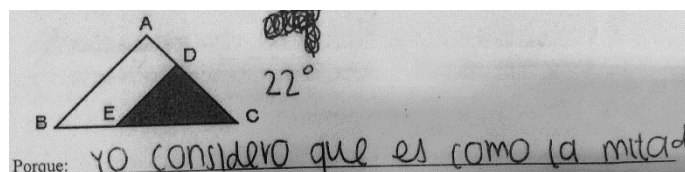 A
D
22°
E
B
C
Porque: Yo considero que es como la mitad